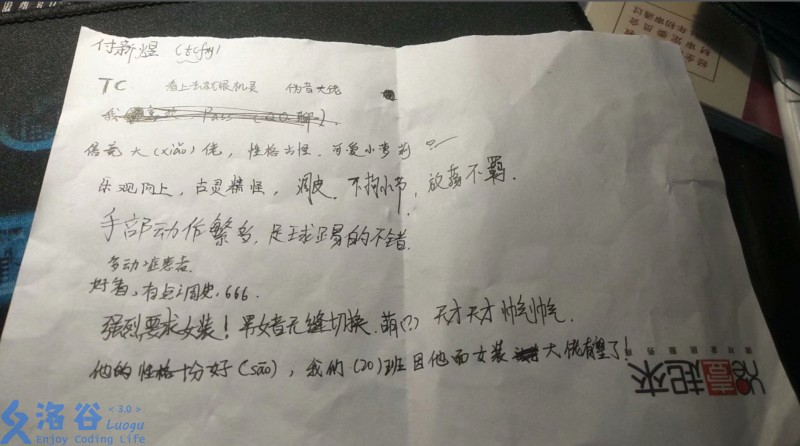 付新煜 (tcfxy)
TC 看上去就很机灵 伪音大佬
我 Pass (QQ聊)
伪音大(xiǎo)佬，性格古怪.可爱小萝莉
乐观向上，古灵精怪，调皮.不拘小节，放荡不羁.
手部动作繁多，足球踢的不错.
多动症患者.
好笔，有点调皮，666.
强烈要求女装！男女音无缝切换.萌(?) 天才天才帅气帅气.
他的性格十分好(sāo)，我们(20)班因他而女装大佬有望了！
壹起來
洛谷 <3.0> Luogu
Enjoy Coding Life